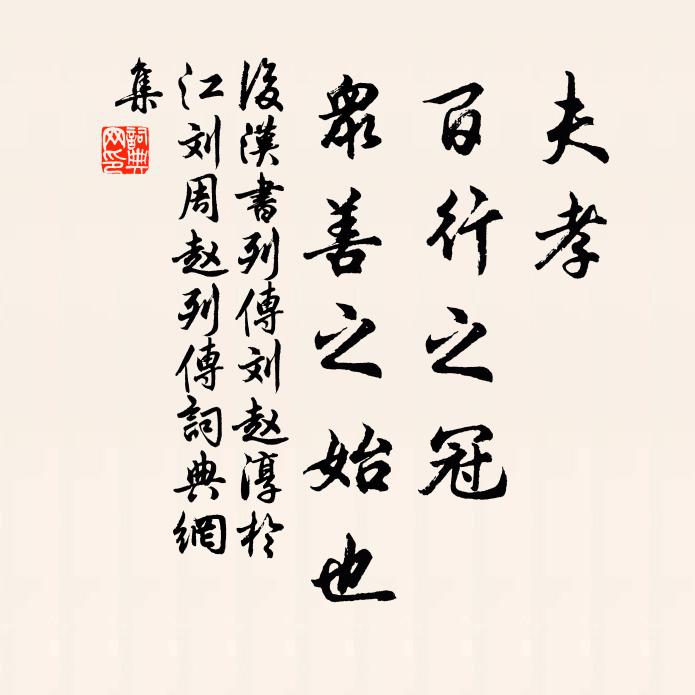 夫孝
百行之冠
眾善之始也
後漢書列傳刘赵淳於
江刘周赵列傳詞典網
集
詞典網印